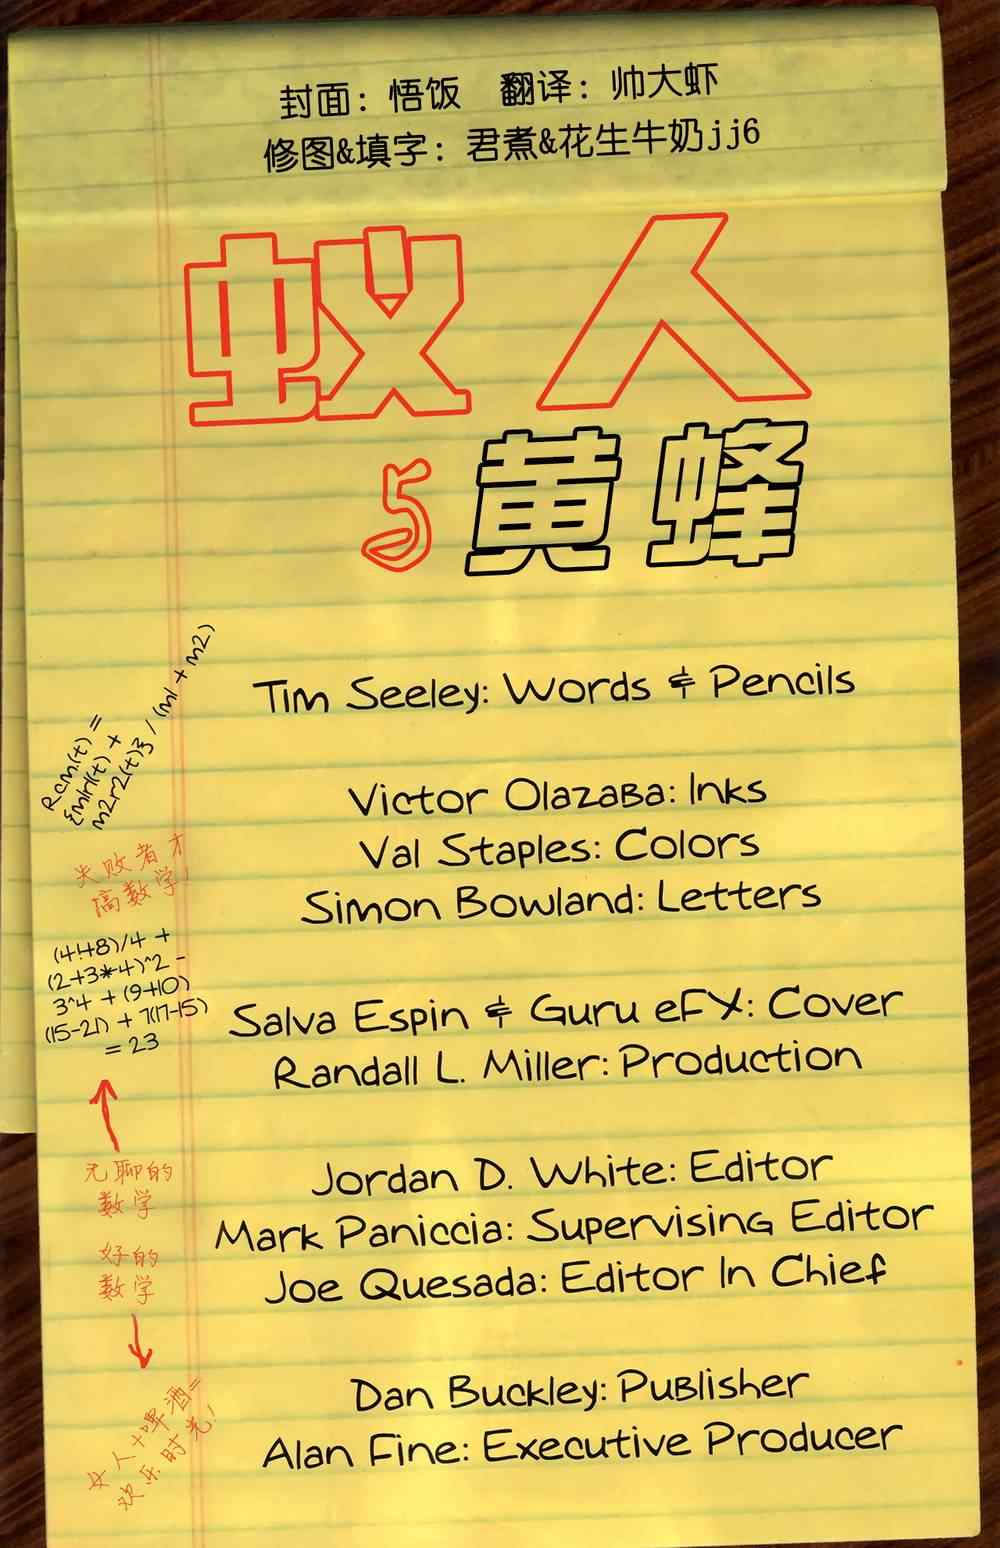 封面：悟饭 翻译：帅大虾
修图&填字：君煮&花生牛奶jj6
蚁人
与黄蜂
Tim Seeley: Words & Pencils
Victor Olazaba: Inks
Val Staples: Colors
Simon Bowland: Letters
Salva Espin & Guru eFX: Cover
Randall L. Miller: Production
Jordan D. White: Editor
Mark Paniccia: Supervising Editor
Joe Quesada: Editor In Chief
Dan Buckley: Publisher
Alan Fine: Executive Producer
Rcm(t) =
{m1r1(t) +
m2r2(t)} / (m1 + m2)
失败者才
搞数学！
(4!+8)/4 +
(2+3*4)^2 -
3^4 + (9+10)
(15-21) + 7(17-15)
= 23
无聊的
数学
好的
数学
女人+啤酒=
欢乐时光！